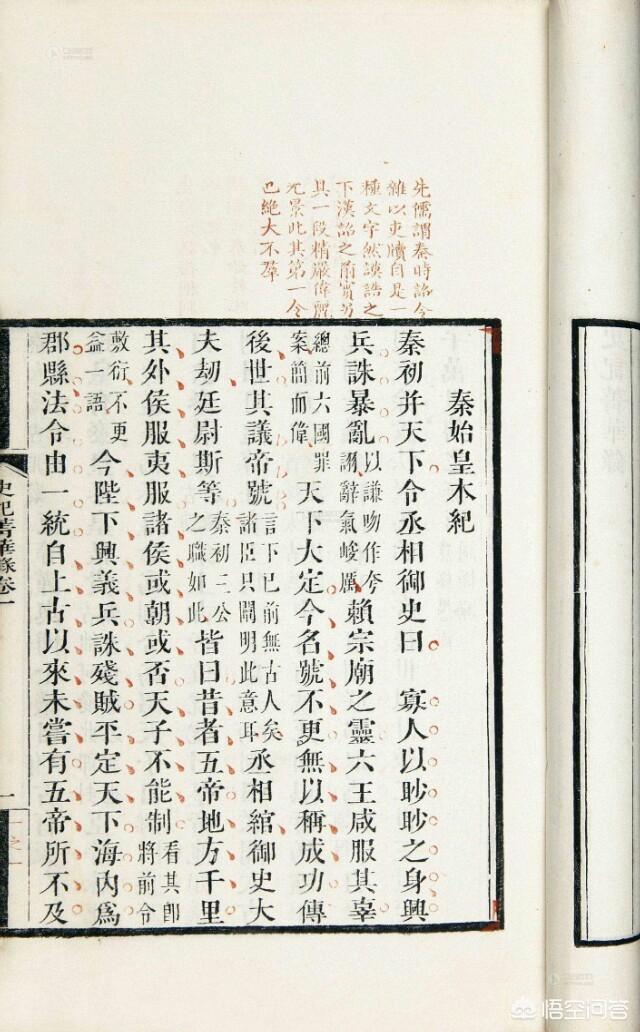 先儒謂秦時詔令
雜以吏牘自是一
種文字然謨誥之
下漢詔之前實另
具一段精嚴偉麗
光景此其第一令
已絕大不羣
秦始皇本紀
秦初并天下令丞相御史曰 寡人以眇眇之身興
兵誅暴亂以謙吻作夸詡辭氣峻厲賴宗廟之靈六王咸服其辜
總前六國罪案簡而偉天下大定今名號不更無以稱成功傳
後世其議帝號言下已前無古人矣諸臣只闡明此意耳丞相綰御史大
夫劫廷尉斯等秦初三公之職如此皆曰昔者五帝地方千里
其外侯服夷服諸侯或朝或否天子不能制看其卽將前令
敷衍不更益一語今陛下興義兵誅殘賊平定天下海內爲
郡縣法令由一統自上古以來未嘗有五帝所不及
史記菁華錄卷一
一
悟空问答